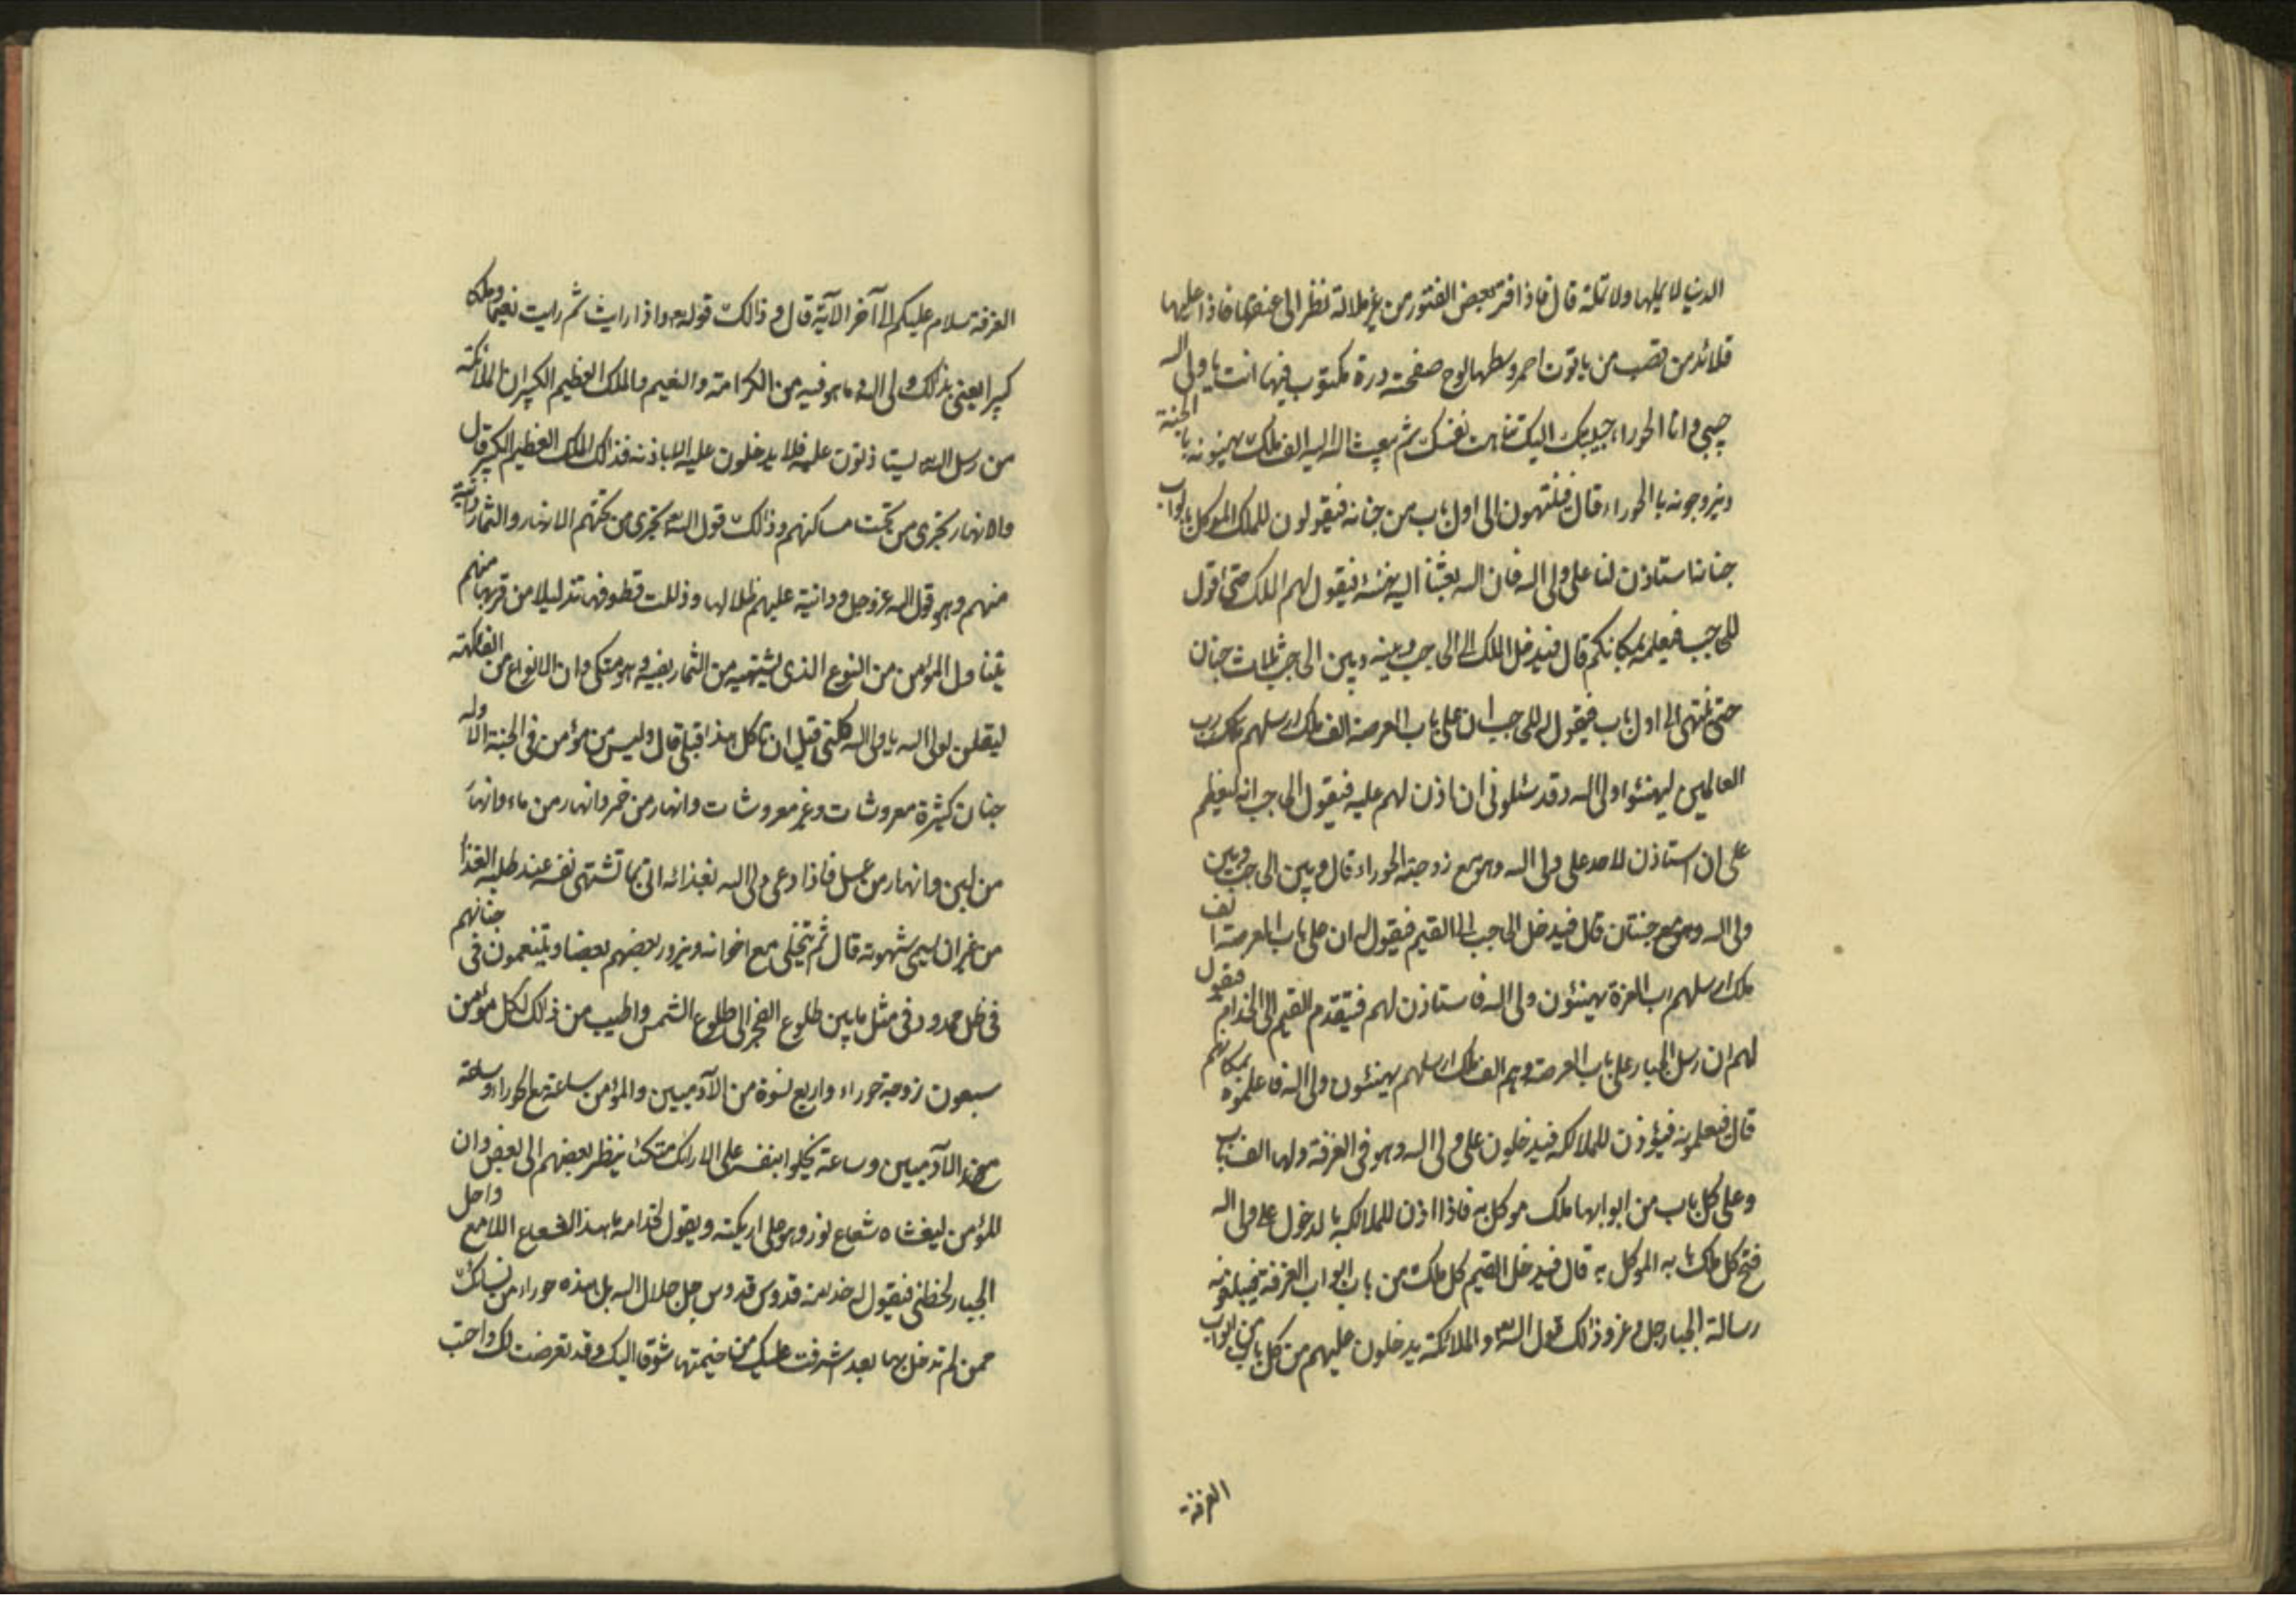 الدنيا لا يملها ولا تمله قال فاذا فتر بعض الفتور من غير ملالة نظر الى عنقها فاذا عليها
قلائد من قصب من ياقوت احمر وسطها لوح صفحته درة مكتوب فيها انت يا ولى الله
حبيبى وانا الحوراء حبيبتك اليك تناهت نفسك ثم يبعث الله اليه الف ملك يهنونه بالجنة
ويزوجونه بالحوراء قال فينتهون الى اول باب من جنانه فيقولون للملك الموكل بابواب
جنانا استاذن لنا على ولى الله فان الله بعثنا اليه نهنئه فيقول لهم الملك حتى اقول
للحاجب فيعلمه بمكانكم قال فيدخل الملك الى الحاجب وبينه وبين الحاجب ثلاث جنان
حتى ينتهى الى اول باب فيقول للحاجب ان على باب العرصة الف ملك ارسلهم ملك رب
العالمين ليهنئوا ولى الله وقد سئلونى ان اذن لهم عليه فيقول الحاجب انه ليعظم
على ان استاذن لاحد على ولى الله وهو مع زوجته الحوراء قال وبين الحاجب وبين
ولى الله وهو مع جنتان قال فيدخل الحاجب الى القيم فيقول له ان على باب العرصة الف
ملك ارسلهم رب العزة يهنئون ولى الله فاستاذن لهم فيتقدم القيم الى الخدام فيقول
لهم ان رسل الجبار على باب العرصة وهم الف ملك ارسلهم يهنئون ولى الله فاعلموه بمكانهم
قال فيعلمونه فيؤذن للملائكه فيدخلون على ولى الله وهو فى الغرفة ولها الف باب
وعلى كل باب من ابوابها ملك موكل به فاذا اذن للملائكه بالدخول على ولى الله
فتح كل ملك بابه الموكل به قال فيدخل القيم كل ملك من باب ابواب الغرفة فيبلغونه
رسالة الجبار جل وعز وذلك قول الله والملائكة يدخلون عليهم من كل باب من ابواب
الغرفة
الغرفة سلام عليكم الى آخر الآية قال و ذالك قوله واذا رايت ثم رايت نعيما وملكا
كبيرا يعنى بذلك ولى الله وما هو فيه من الكرامة والنعيم والملك العظيم الكبير ان الملائكة
من رسل الله يستاذنون عليه فلا يدخلون عليه الا باذنه فذالك الملك العظيم الكبير قال
والانهار تجرى من تحت مساكنهم وذالك قول الله تجرى من تحتهم الانهار والثمار دانية
منهم وهو قول الله عز وجل ودانية عليهم ظلالها وذللت قطوفها تذليلا من قربها منهم
يتناول المؤمن من النوع الذى يشتهيه من الثمار بفيه وهو متكى وان الانواع من الفاكهة
ليقلن لولى الله يا ولى الله كلنى قبل ان تاكل هذا قبلى قال وليس من مؤمن فى الجنة الا وله
جنان كثيرة معروشات وغير معروشات وانهار من خمر وانهار من ماء وانهار
من لبن وانهار من عسل فاذا دعى ولى الله بغذائه اتى بما تشتهى نفسه عند طلبه الغذا
من غير ان يسمى شهوته قال ثم يتخلى مع اخوانه ويزور بعضهم بعضا ويتنعمون فى جناتهم
فى ظل ممدود فى مثل ما بين طلوع الفجر الى طلوع الشمس واطيب من ذالك لكل مؤمن
سبعون زوجة حوراء واربع نسوة من الآدميين والمؤمن ساعة مع الحوراء وساعة
مع الآدميين وساعة يخلوا بنفسه على الارائك متكئا ينظر بعضهم الى بعض وان
للمؤمن ليغشاه شعاع نور وهو على اريكته ويقول لخدامه ما هذا الشعاع اللامع واحل
الجبار لحظنى فيقول له خدامه قدوس قدوس جل جلال الله بل هذه حوراء من نسائك
ممن لم تدخل بها بعد اشرفت عليك من خيمتها شوقا اليك وقد تعرضت لك واحبت